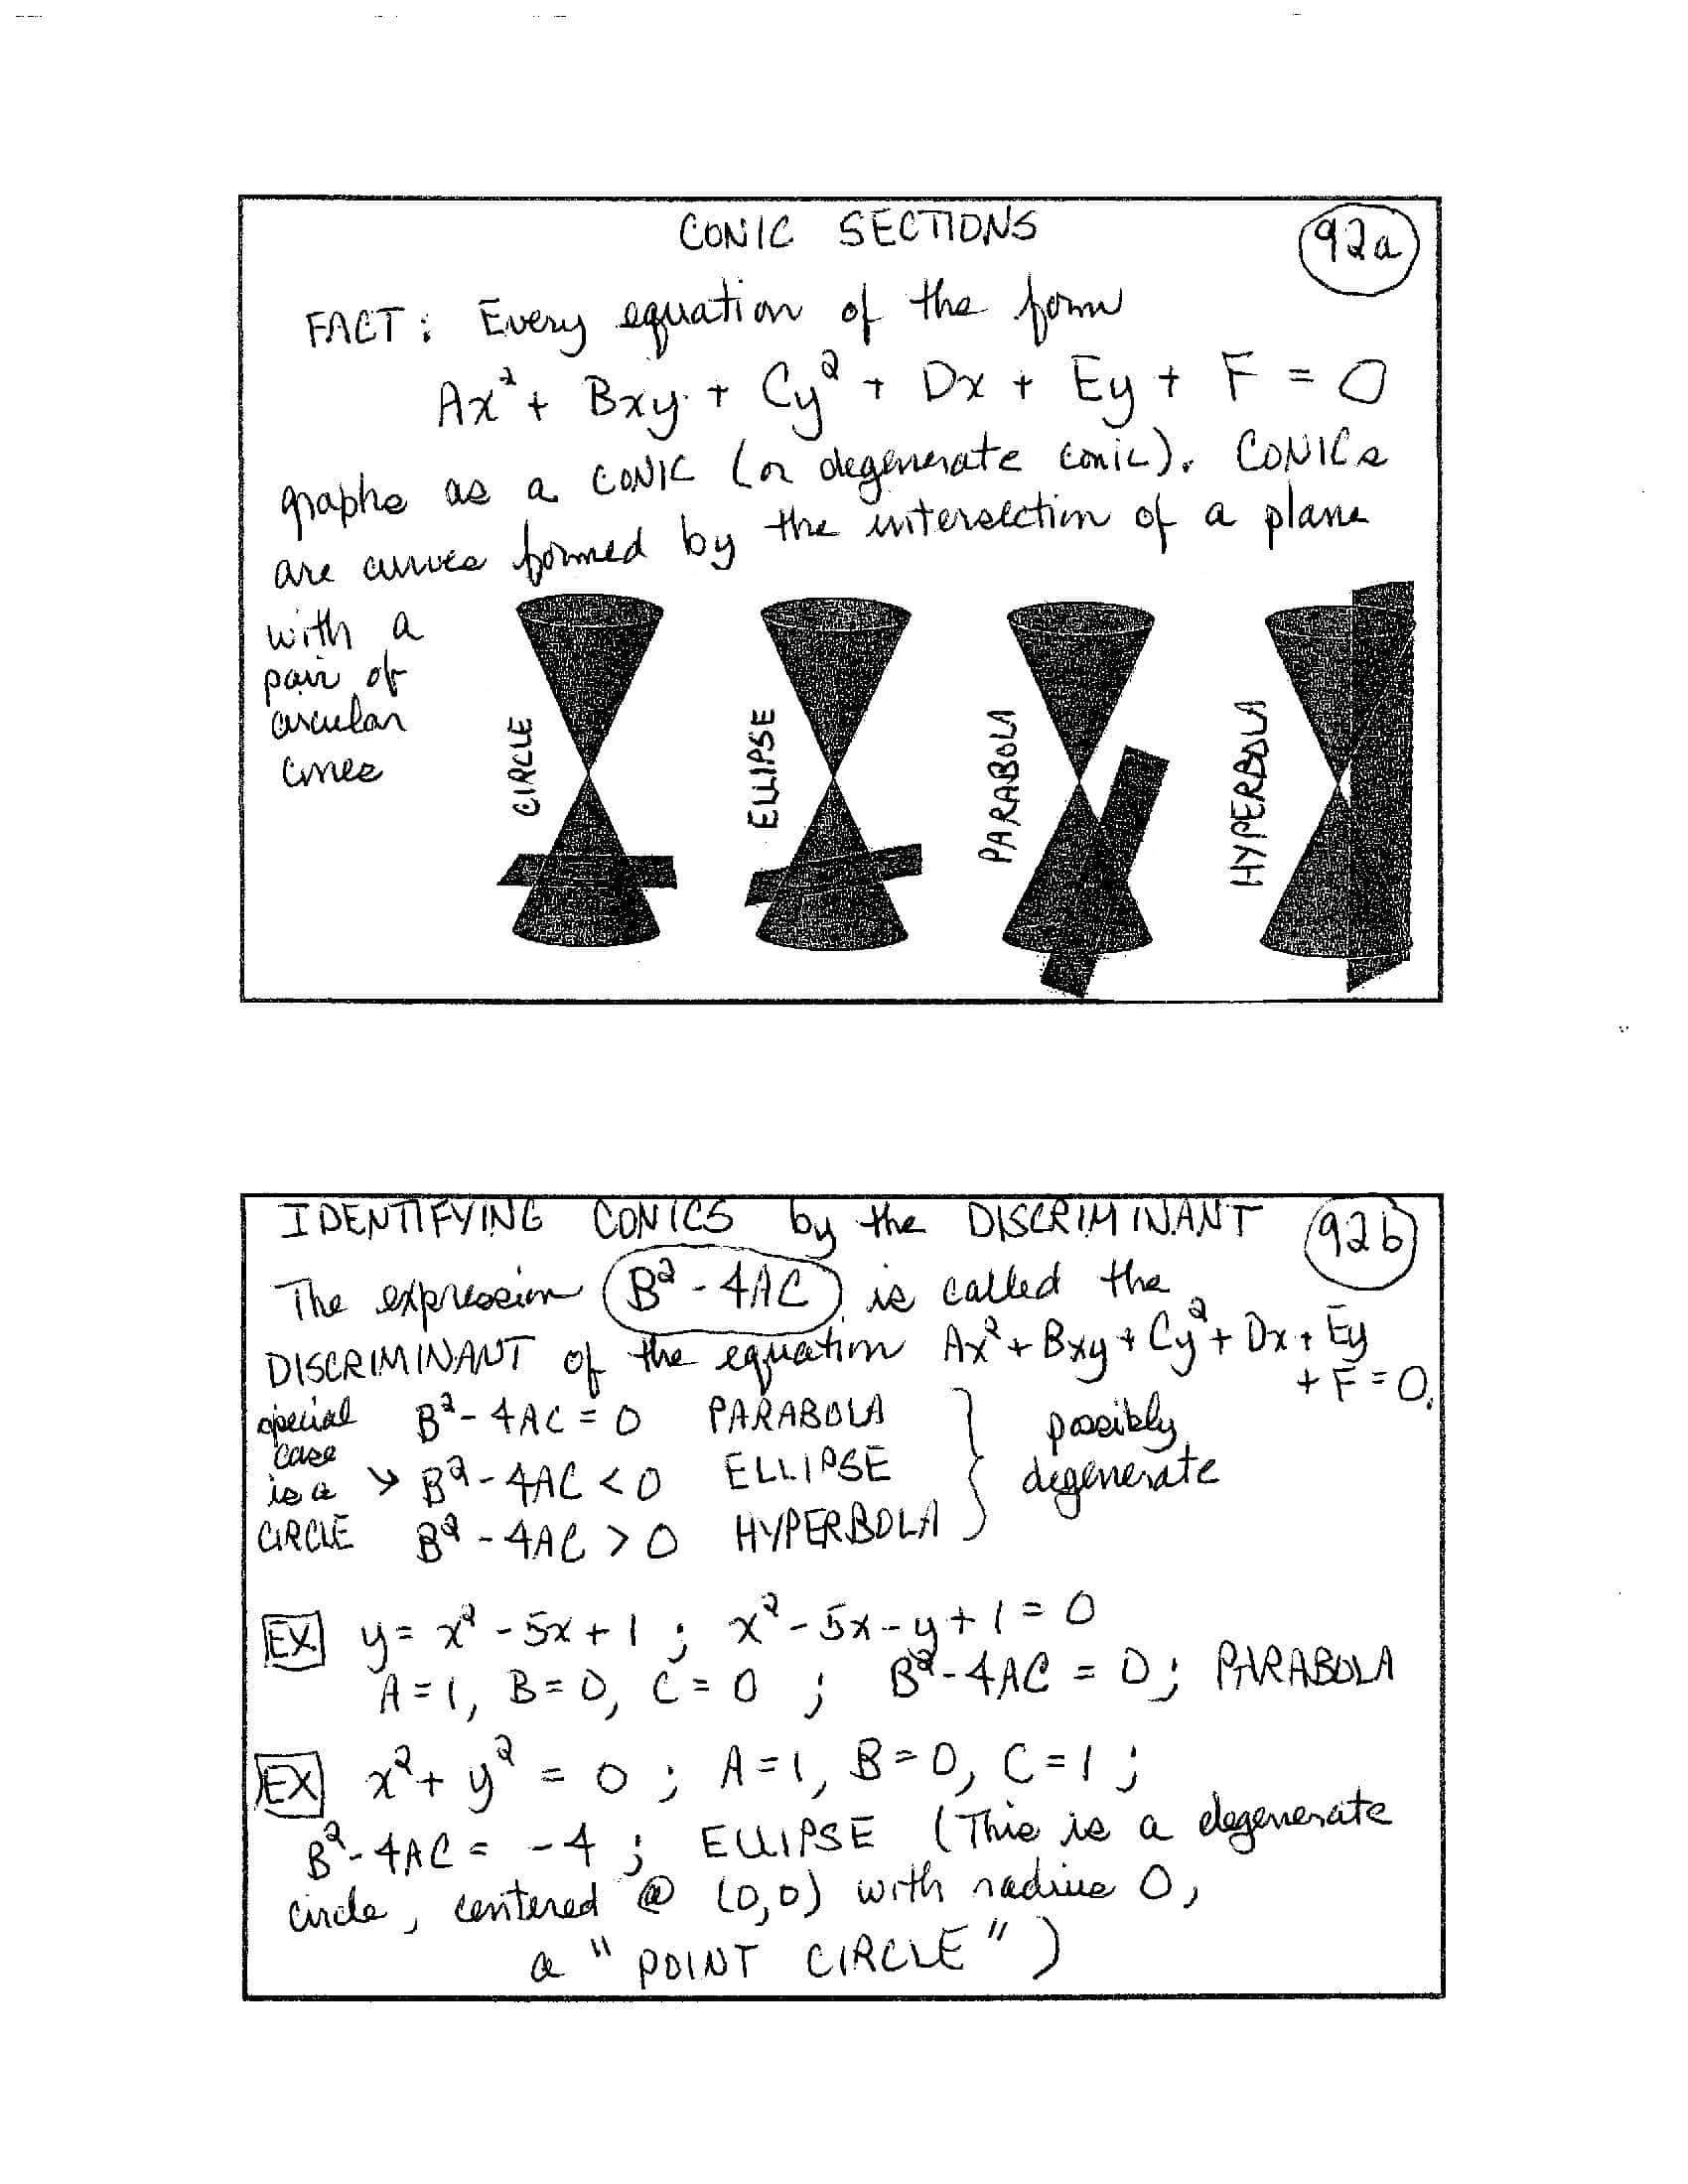 CONIC SECTIONS
92a
FACT: Every equation of the form
Ax² + Bxy + Cy² + Dx + Ey + F = 0
graphs as a CONIC (or degenerate conic). CONICs
are curves formed by the intersection of a plane
with a
pair of
circular
cones
CIRCLE
ELLIPSE
PARABOLA
HYPERBOLA
IDENTIFYING CONICS by the DISCRIMINANT
92b
The expression B² - 4AC is called the
DISCRIMINANT of the equation Ax² + Bxy + Cy² + Dx + Ey
+ F = 0.
special
case
is a
CIRCLE
B² - 4AC = 0 PARABOLA
B² - 4AC < 0 ELLIPSE
B² - 4AC > 0 HYPERBOLA
possibly
degenerate
EX y = x² - 5x + 1 ; x² - 5x - y + 1 = 0
A = 1, B = 0, C = 0 ; B² - 4AC = 0 ; PARABOLA
EX x² + y² = 0 ; A = 1, B = 0, C = 1 ;
B² - 4AC = -4 ; ELLIPSE (This is a degenerate
circle, centered @ (0,0) with radius 0,
a "POINT CIRCLE")